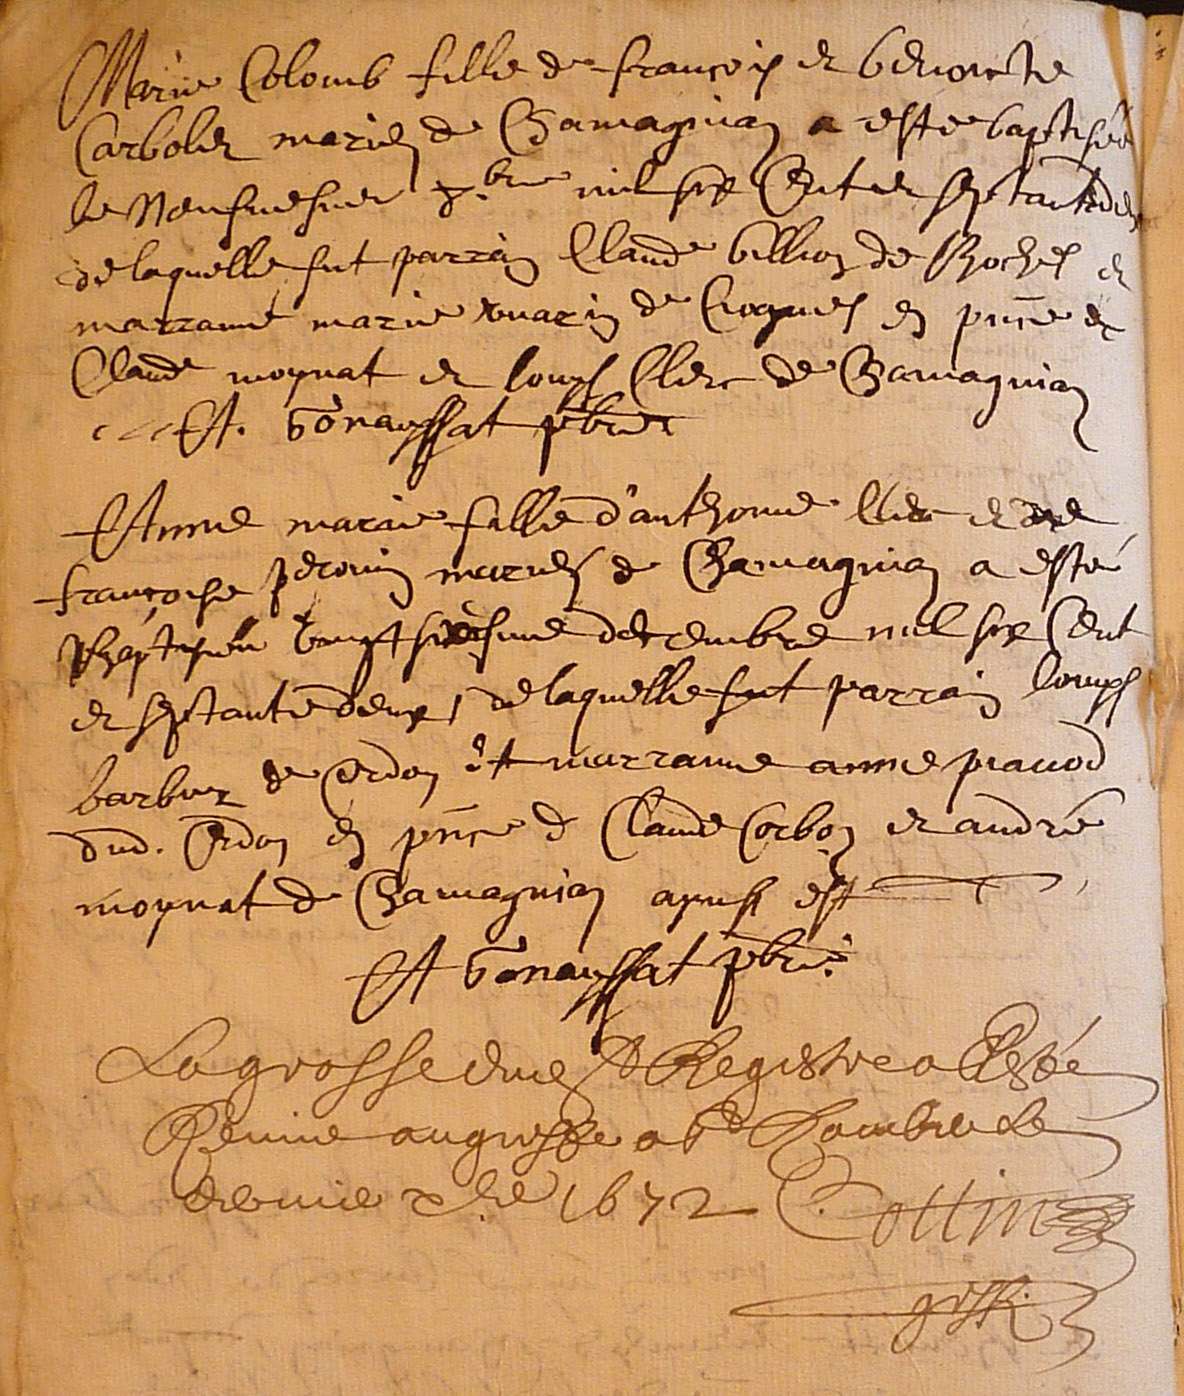 Marie Colomb fille de françois et benoicte
Carbolet mariez de Chamagnian a esté baptisée
le neufviesme xbre mil six Cent et septantedeux
de laquelle fut parrain Claude billion de Rochez et
marranne marie de Crognes en pnce de
Claude moynat et Louys Clerc de Chamagnian
A. bonauffat pbre
Anne marie fillie d'anthonne Clerc et de
françoise peronin mariez de Chamagnian a esté
baptisée vingt sixiesme decembre mil six Cent
et septante deux, de laquelle fut parrain Louys
barbier de Cerdon et marranne anne pravod
dud. Cerdon en pnce de Claude Corbon et andré
moynat de Chamagnian apnst est
A bonauffat pbre
La grosse du Registre a Esté
Remise au greffe le
dernier xbre 1672 Cottin